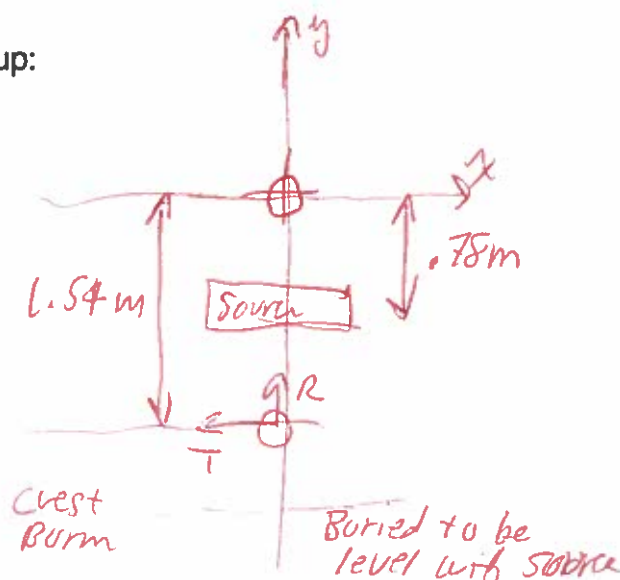 up:
y
x
.78m
1.54m
Source
R
T
Crest
Burm
Buried to be
level with source